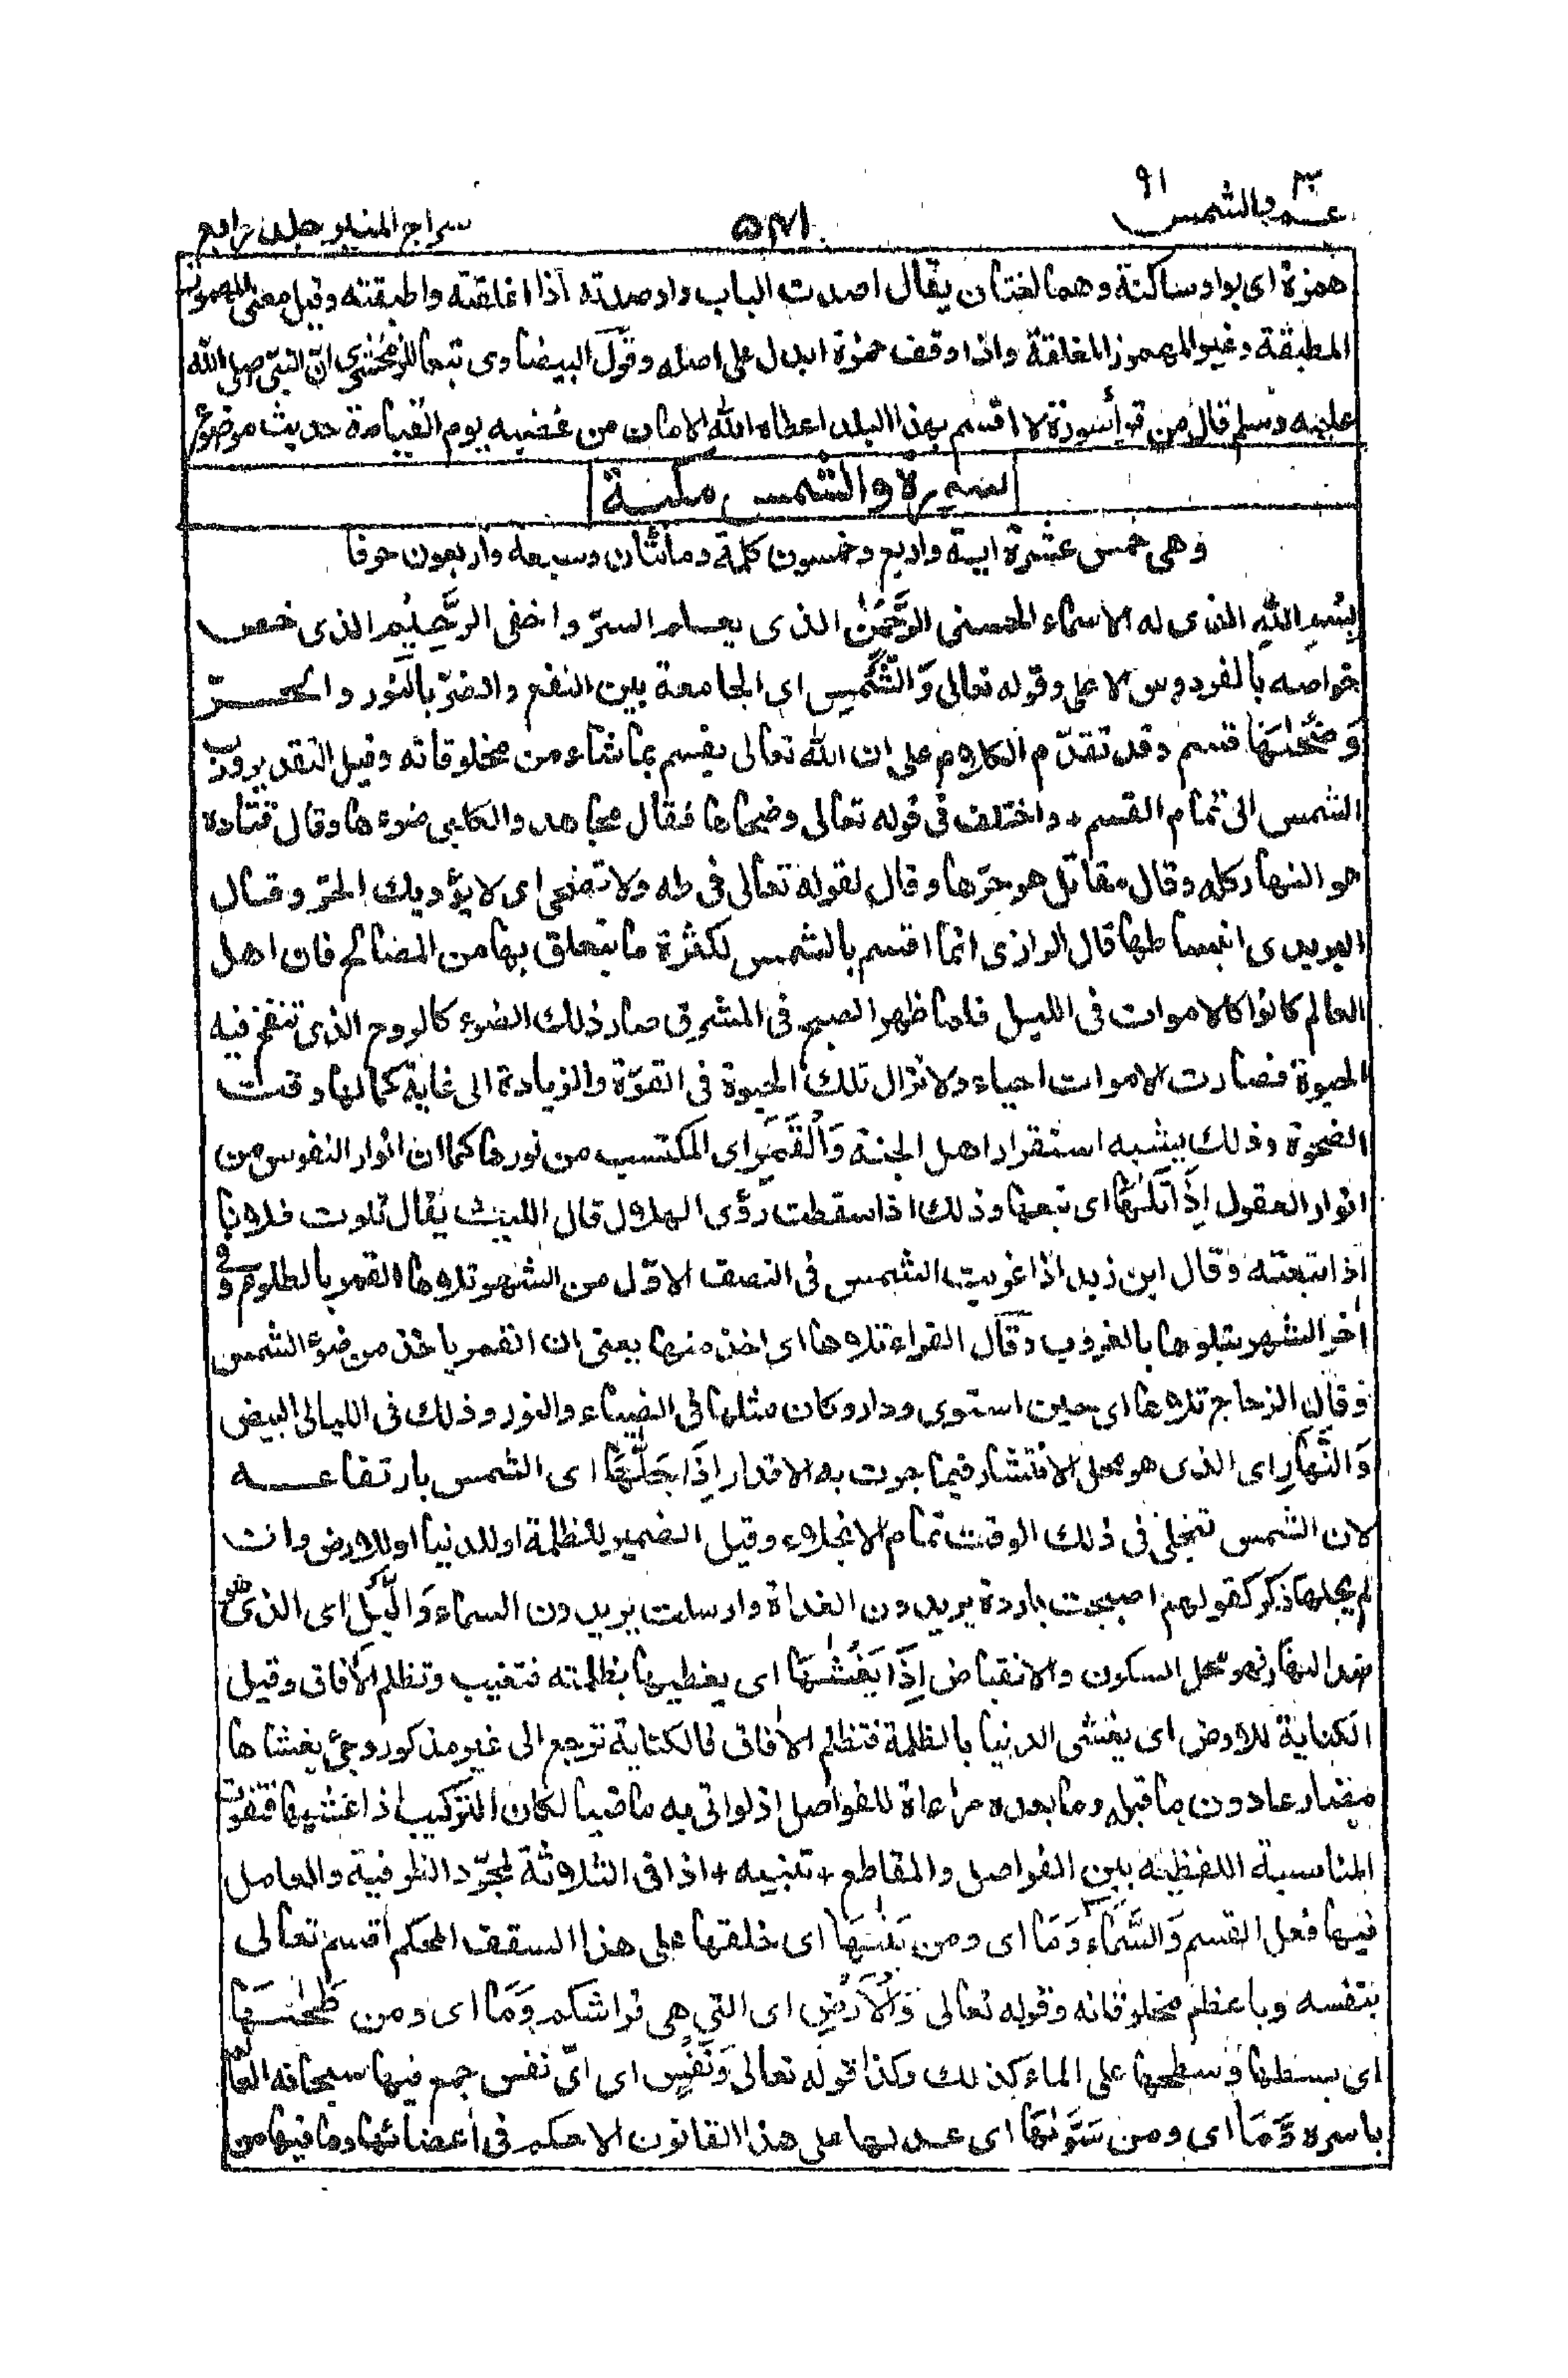 عم والشمس ٩١
٥٤١
سراج المنير جلد رابع
همزة اى بواو ساكنة وهما لغتان يقال اصدت الباب واوصدته اذا اغلقته واطبقته وقيل معنى المهموز
المطبقة وغير المهموز المغلقة واذا وقف حمزة ابدل على اصله وقول البيضاوى تبعا للزمخشرى انّ النبىّ صلى الله
عليه وسلم قال من قرأ سورة لا اقسم بهذا البلد اعطاه الله الامان من غضبه يوم القيامة حديث موضوع
سورة والشمس مكية
وهى خمس عشرة اية واربع وخمسون كلمة ومائتان وسبعه واربعون حرفا
بِسْمِ اللّٰهِ الذى له الاسماء الحسنى الرَّحْمٰنِ الذى يعلم السرّ واخفى الرَّحِيْمِ الذى خص
خواصه بالفردوس الاعلى وقوله تعالى وَالشَّمْسِ اى الجامعة بين النفع والضرّ بالنور والحــرّ
وَضُحٰىهَا قسم وقد تقدّم الكلام على ان الله تعالى يقسم بما شاء من مخلوقاته وقيل التقدير ورب
الشمس الى تمام القسم + واختلف فى قوله تعالى وضحاها فقال مجاهد والكلبى ضوءها وقال قتادة
هو النهار كله وقال مقاتل هو حرّها وقال لقوله تعالى فى طه ولا تضحى اى لا يؤذيك الحرّ وقال
اليريدى انبساطها قال الرازى انما اقسم بالشمس لكثرة ما يتعلق بها من المصالح فان اهل
العالم كانوا كالاموات فى الليل فلما ظهر الصبح فى المشرق صار ذلك الضوء كالروح الذى تنفخ فيه
الحيوة فصارت الاموات احياء ولا تزال تلك الحيوة فى القوّة والزيادة الى غاية كمالها وقت
الضحوة وذلك يشبه استقرار اهل الجنة وَالْقَمَرِ اى المكتسب من نورها كما ان انوار النفوس من
انوار العقول اِذَا تَلٰىهَا اى تبعها وذلك اذا سقطت رؤى الهلال قال الليث يقال تلوت فلانا
اذا تبعته وقال ابن زيد اذا غربت الشمس فى النصف الاوّل من الشهر تلاها القمر بالطلوع وفى
اٰخر الشهر يتلوها بالغروب وقال الفراء تلاها اى اخذ منها يعنى ان القمر ياخذ من ضوء الشمس
وقال الزجاج تلاها اى حين استوى ودار وكان مثلها فى الضياء والنور وذلك فى الليالى البيض
وَالنَّهَارِ اى الذى هو محل الانتشار فيما جرت به الاقدار اِذَا جَلّٰىهَا اى الشمس بارتفاعــه
لان الشمس تنجلى فى ذلك الوقت تمام الانجلاء وقيل الضمير للظلمة او للدنيا او للارض وانت
لم يجر لها ذكر كقولهم اصبحت باردة يريدون الغداة وارسلت يريدون السماء وَالَّيْلِ اى الذى هو
ضد النهار فهو محل السكون والانقباض اِذَا يَغْشٰىهَا اى يغطيها بظلمته فتغيب وتظلم الآفاق وقيل
الكناية للارض اى يغشى الدنيا بالظلمة فتظلم الاٰفاق فالكناية ترجع الى غير مذكور وجئ بغشاها
مضارعا دون ما قبله وما بعده مراعاة للفواصل اذ لو اتى به ماضيا لكان التركيب اذا غشيها فتفوت
المناسبة اللفظية بين الفواصل والمقاطع + تنبيه + اذا فى الثلاثة لمجرّد الظرفية والعامل
فيها فعل القسم وَالسَّمَآءِ وَمَا اى ومن بَنٰىهَا اى خلقها على هذا السقف المحكم اقسم تعالى
بنفسه وباعظم مخلوقاته وقوله تعالى وَالْاَرْضِ اى التى هى فراشكم وَمَا اى ومن طَحٰىهَا
اى بسطها وسطحها على الماء كذلك وكذا قوله تعالى وَنَفْسٍ اى اىّ نفس جمع فيها سبحانه العالم
باسره وَّمَا اى ومن سَوّٰىهَا اى عدلها على هذا القانون الاحكم فى اعضائها وما فيها من